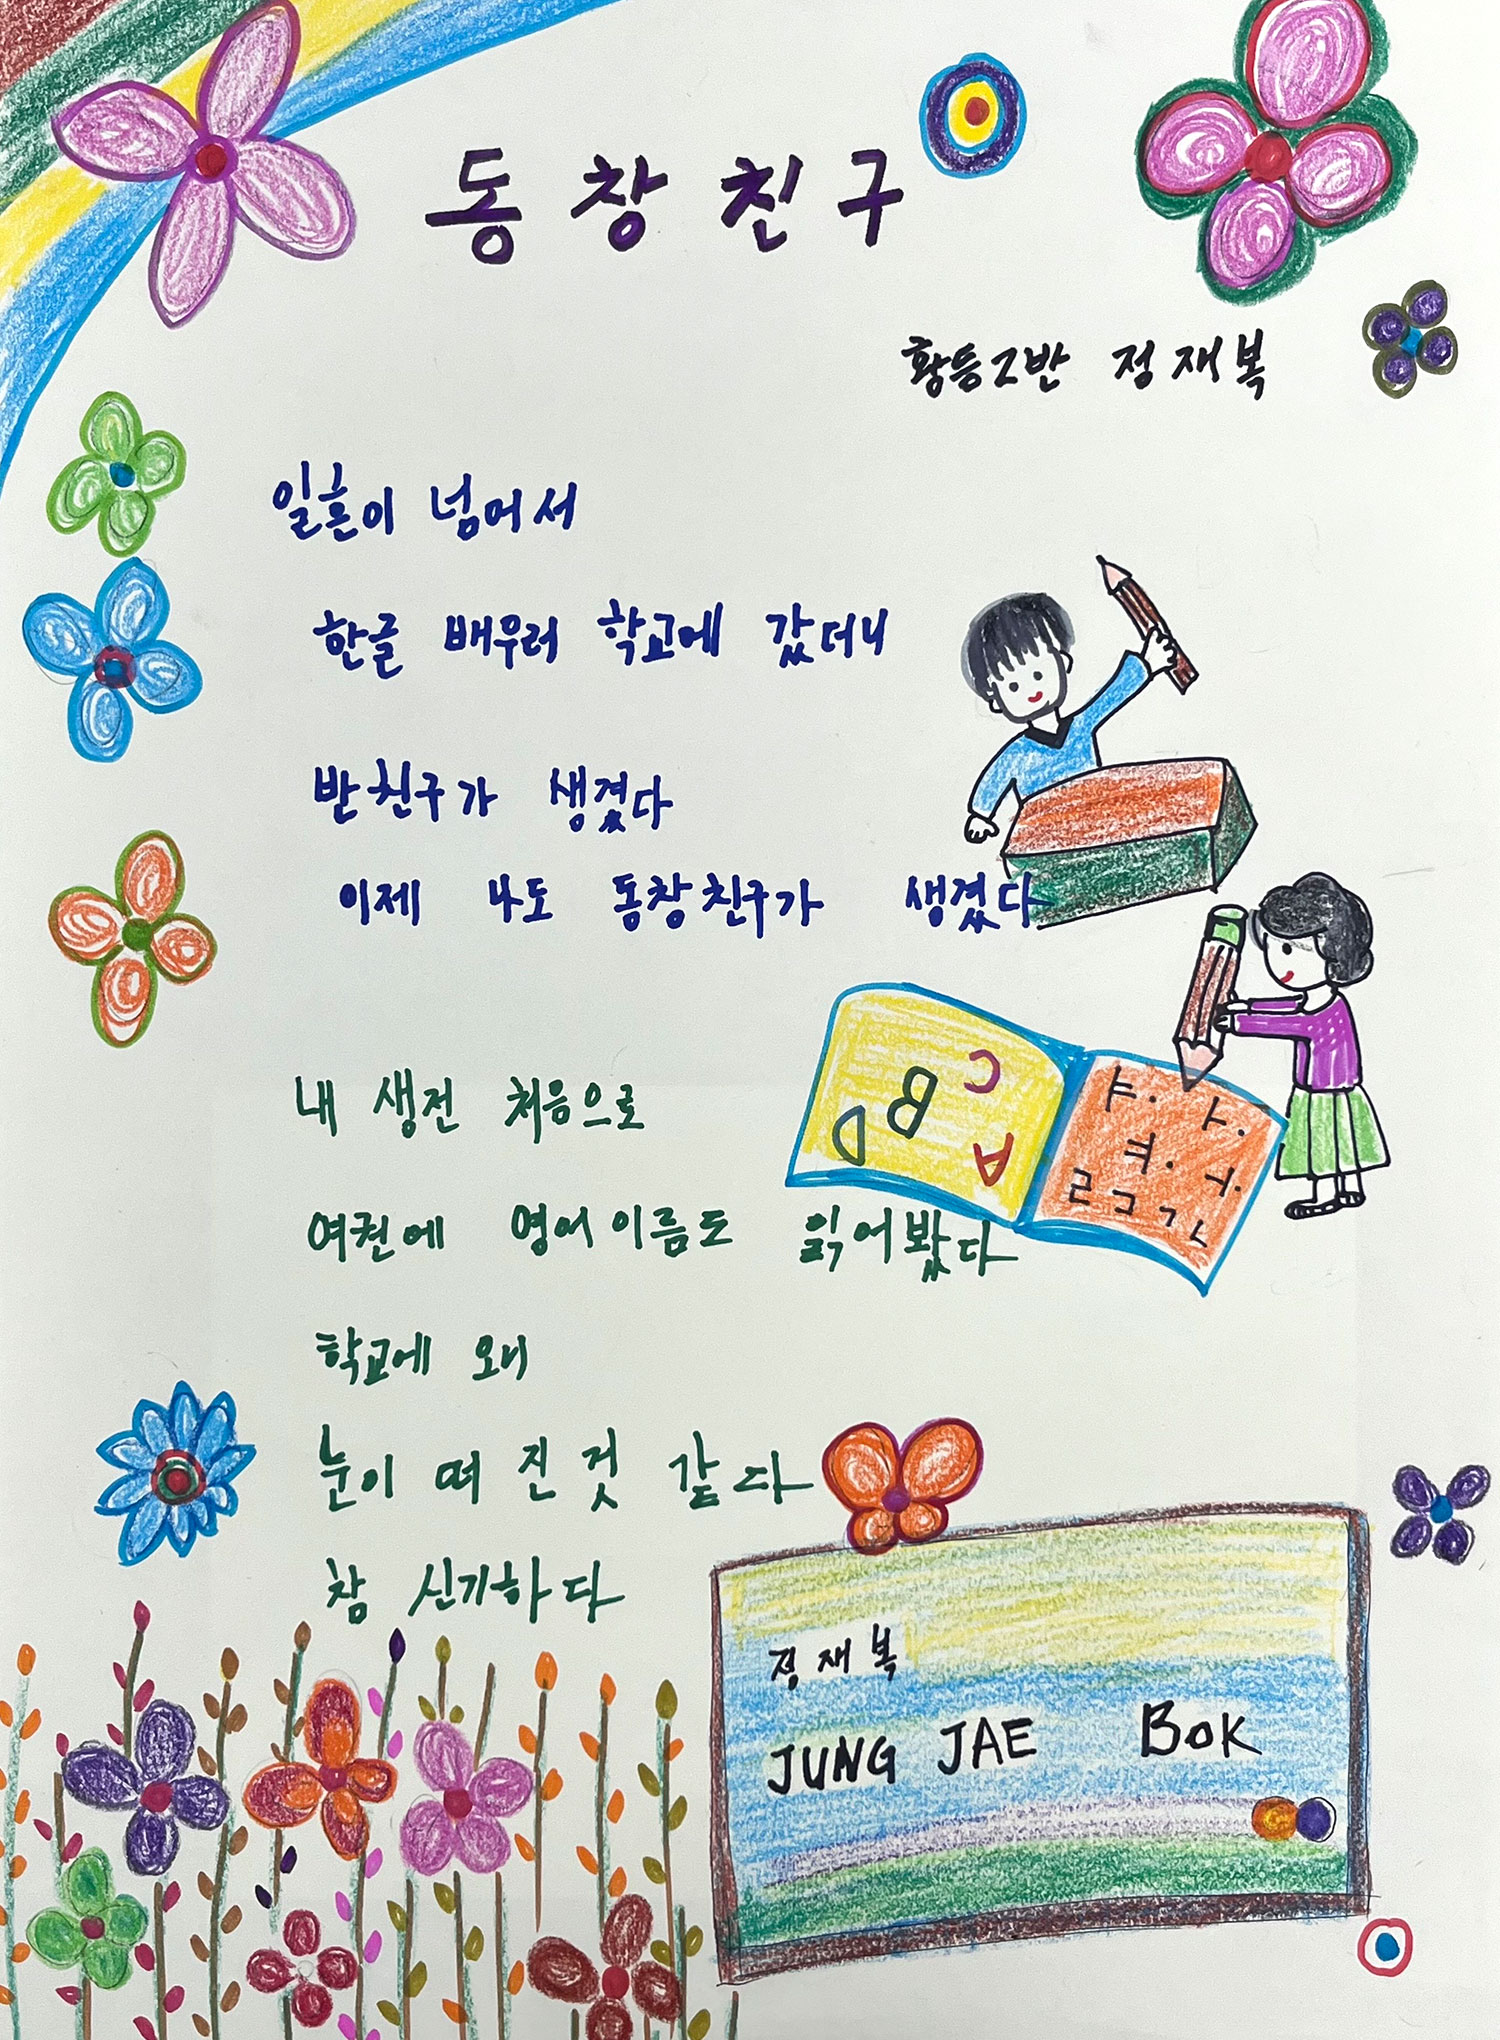 동창친구
황등2반 정재복
일흔이 넘어서
한글 배우러 학교에 갔더니
반친구가 생겼다
이제 나도 동창친구가 생겼다
내 생전 처음으로
여권에 영어이름도 읽어봤다
학교에 오니
눈이 떠진것 같다
참 신기하다
A B C D
정재복
JUNG JAE BOK